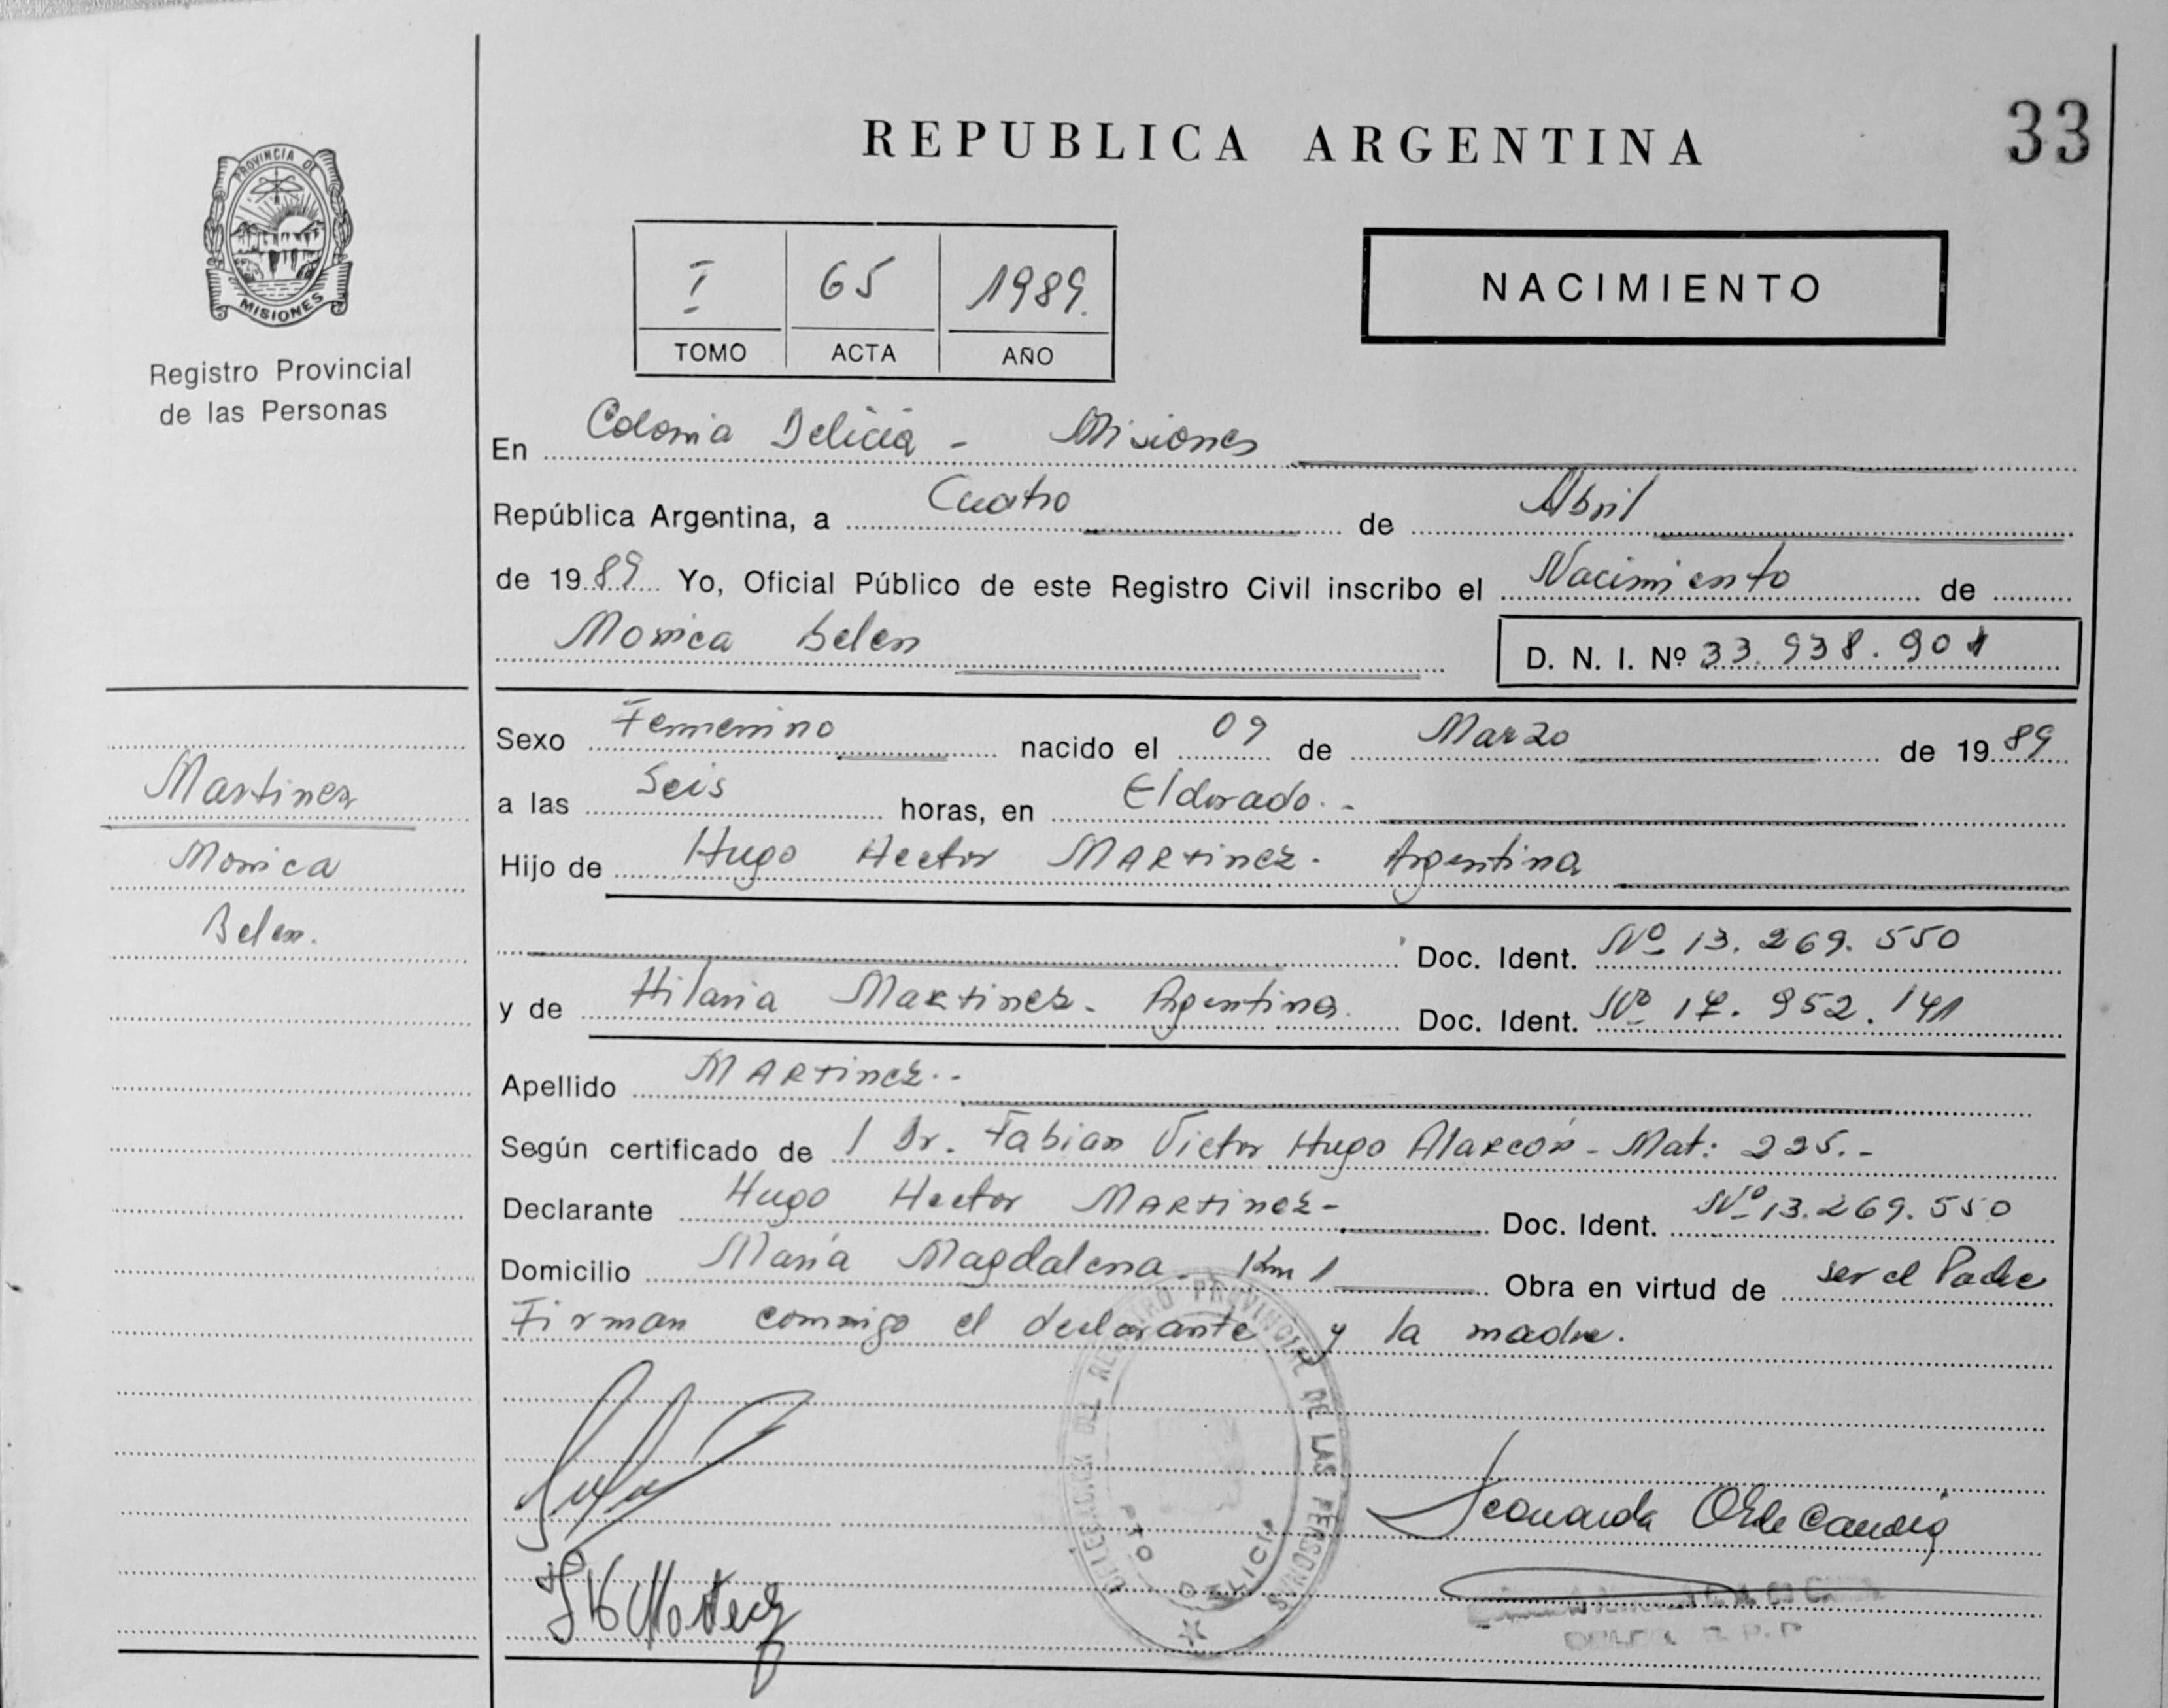 REPUBLICA ARGENTINA
33
PROVINCIA DE
MISIONES
Registro Provincial
de las Personas
I 65 1989.
TOMO ACTA AÑO
NACIMIENTO
En Colonia Delicia - Misiones
República Argentina, a Cuatro de Abril
de 1989 Yo, Oficial Público de este Registro Civil inscribo el Nacimiento de
Monica Belen
D. N. I. Nº 33.938.901
Sexo Femenino nacido el 09 de Marzo de 1989
a las Seis horas, en Eldorado.-
Hijo de Hugo Hector MARtinez. Argentina
Doc. Ident. Nº 13.269.550
y de Hilaria MARtinez. Argentina. Doc. Ident. Nº 17.952.141
Apellido MARtinez.-
Según certificado de / Dr. Fabian Victor Hugo Alarcón - Mat: 225.-
Declarante Hugo Hector MARtinez- Doc. Ident. Nº 13.269.550
Domicilio María Magdalena- Km 1 Obra en virtud de ser el Padre
Firman conmigo el declarante y la madre.
Martinez
Monica
Belen.
DELEGACION DEL REGISTRO PROVINCIAL DE LAS PERSONAS
PTO DELICIA